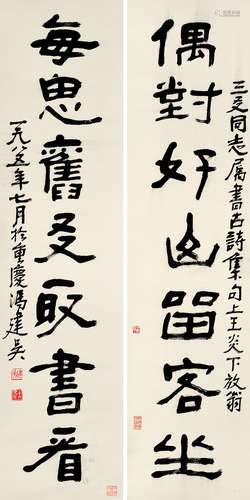 偶對好山留客坐
三同志属書古詩集句上王炎下放翁
每思舊友取書看
一九八五年七月於重慶馮建吴